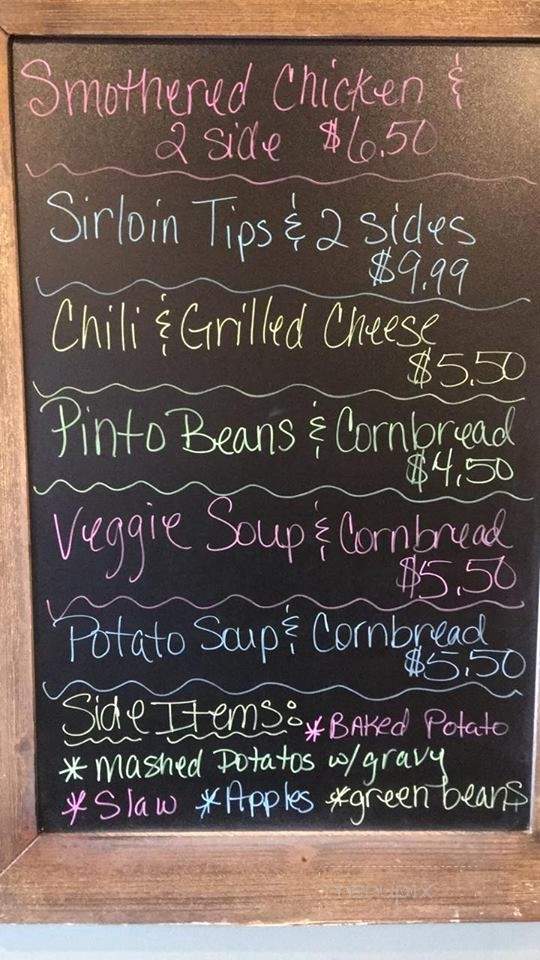 Smothered Chicken &
2 side $6.50
Sirloin Tips & 2 sides
$9.99
Chili & Grilled Cheese
$5.50
Pinto Beans & Cornbread
$4.50
Veggie Soup & Cornbread
$5.50
Potato Soup & Cornbread
$5.50
Side Items: *BAKed Potato
* mashed Potatos w/gravy
*Slaw *Apples *green beans
menupix